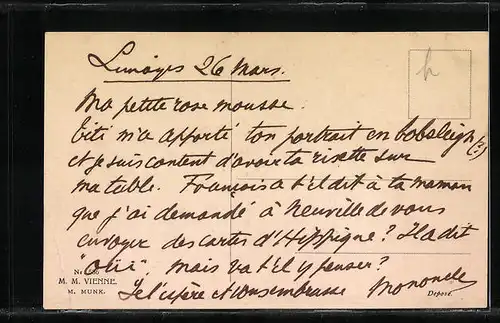 Limoges 26 mars.
h
Ma petite rose mousse
Titi m'a apporté ton portrait en bobsleigh (?)
et je suis content d'avoir ta risette sur
ma table. François a t'il dit à ta maman
que j'ai demandé à Neuville de vous
envoyer des cartes d'Hippique? Il a dit
"oui", mais va t'il y penser?
Je l'espère et vous embrasse Mononcle
Nr
M. M. VIENNE.
M. MUNK.
Deposé.